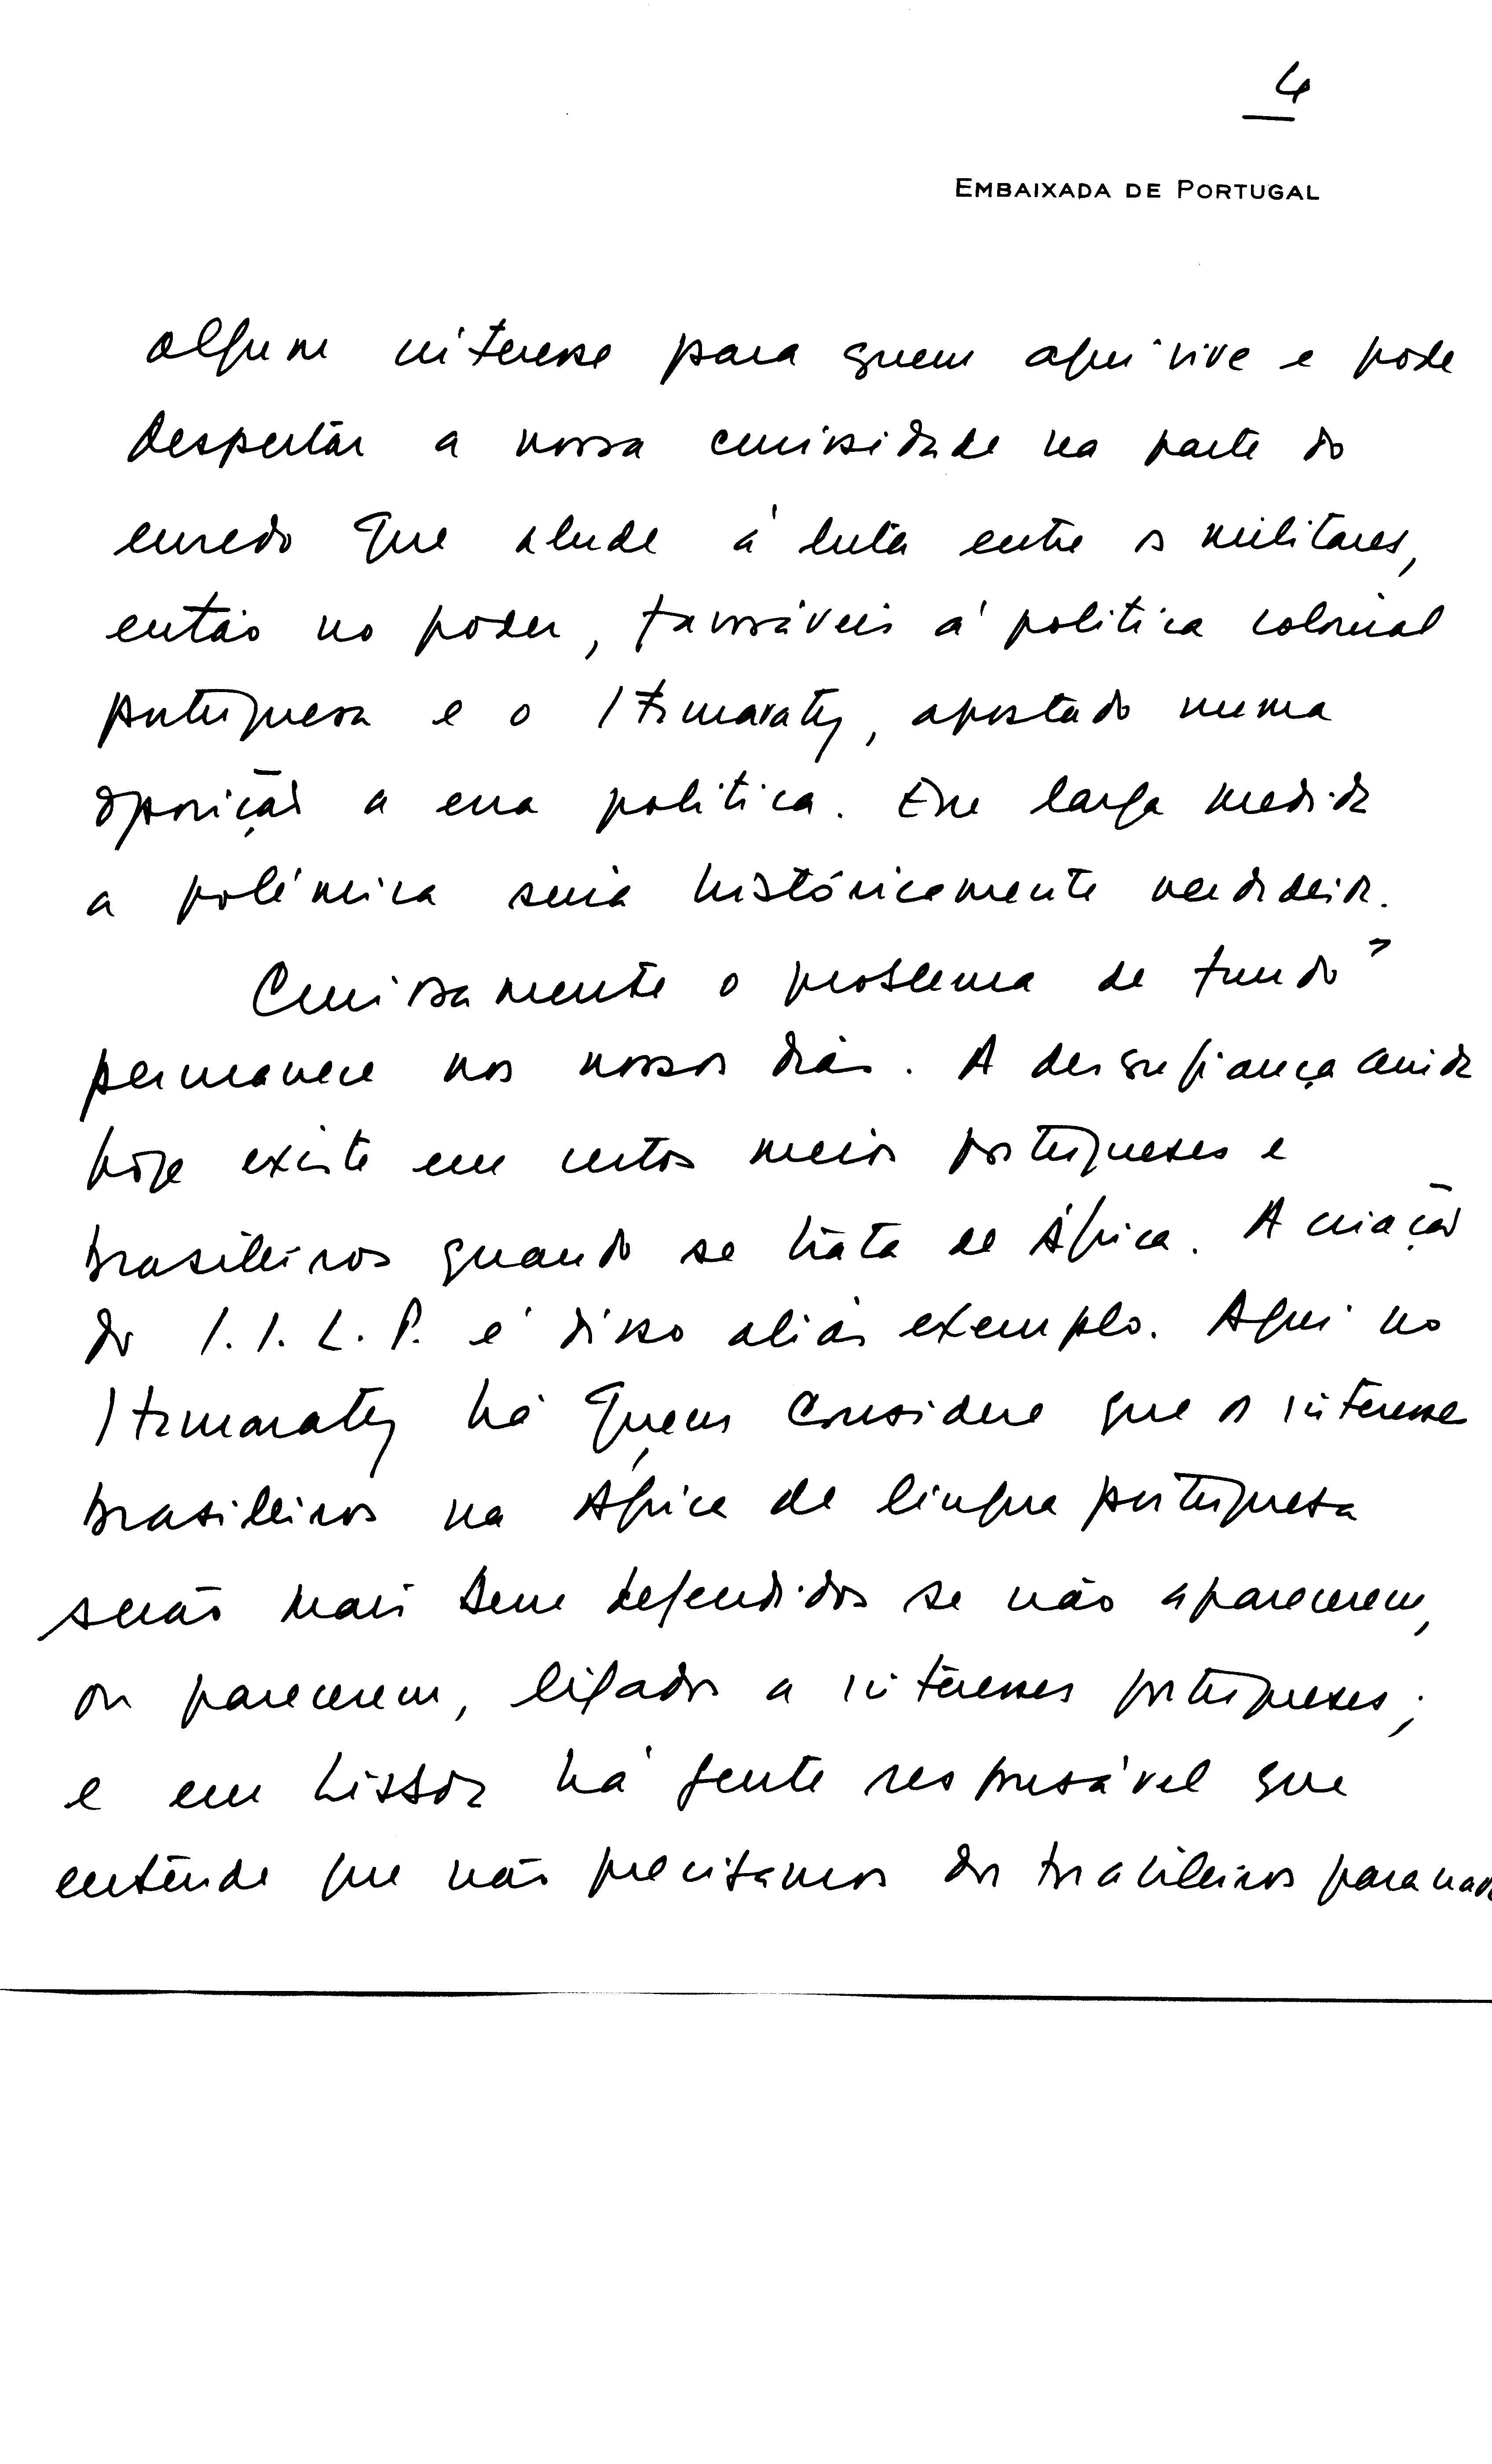 4
EMBAIXADA DE PORTUGAL
algum interesse para quem aqui vive e pode
despertar a nossa curiosidade na parte do
enredo que alude à luta entre os militares,
então no poder, favoráveis à politica colonial
portuguesa e o Itamaraty, apostado numa
oposição a essa politica. Em larga medida
a polémica seria históricamente verdadeira.
Curiosamente o problema de fundo
permanece nos nossos dias. A desconfiança ainda
hoje existe em certos meios portugueses e
brasileiros quando se trata de África. A criação
do I.I.L.P. é disso aliás exemplo. Aqui no
Itamaraty há quem considere que os interesses
brasileiros na África de lingua portuguesa
serão mais bem defendidos se não aparecerem,
ou parecerem, ligados a interesses portugueses;
e em Lisboa há gente responsável que
entende que não precisamos dos brasileiros para nada